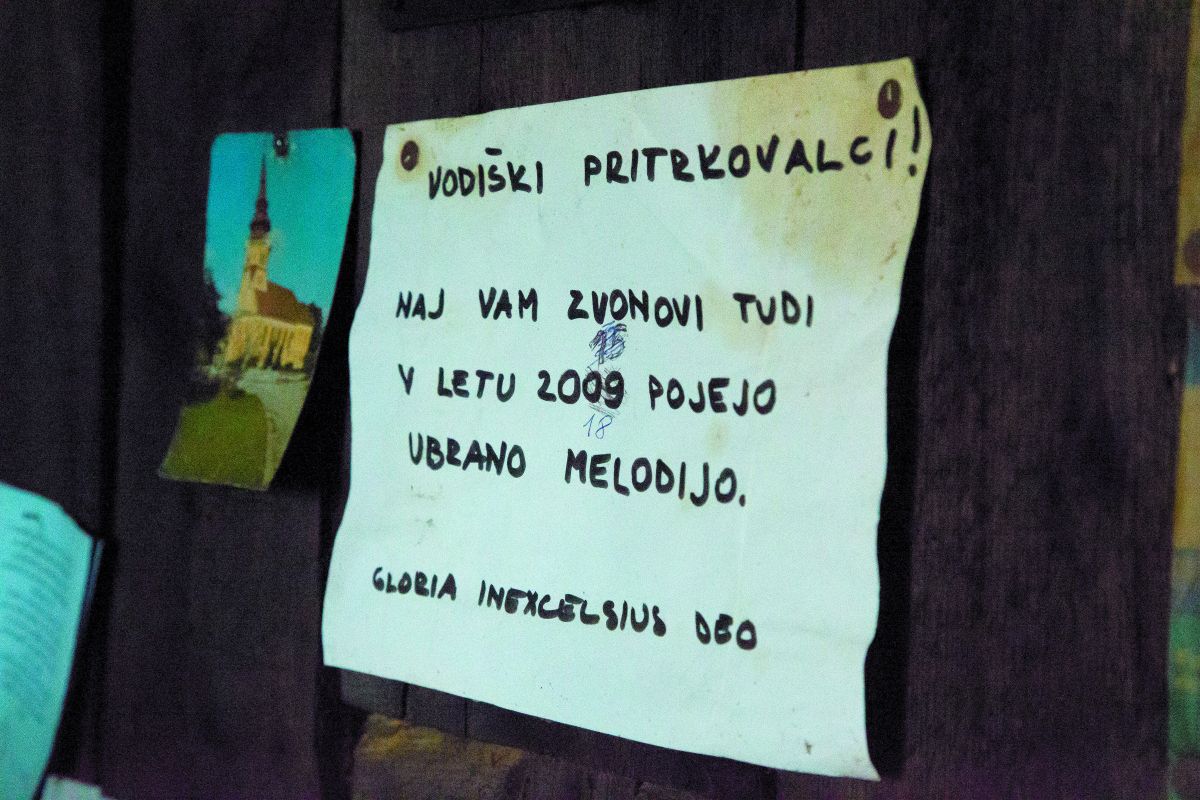 VODIŠKI PRITRKOVALCI!
NAJ VAM ZVONOVI TUDI
V LETU 2009 POJEJO
18
UBRANO MELODIJO.
GLORIA INEXCELSIUS DEO